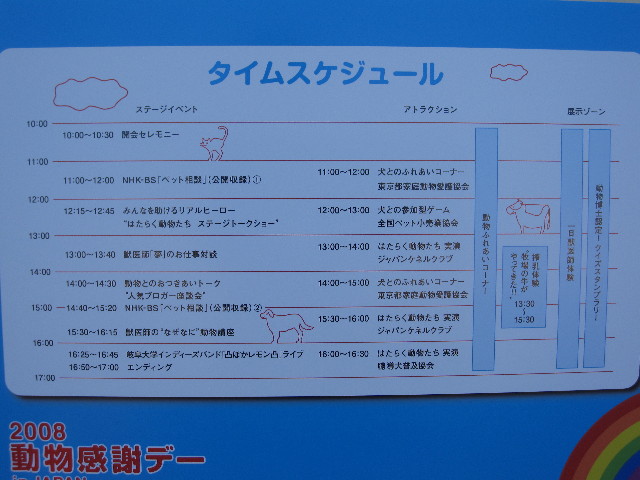 タイムスケジュール
ステージイベント
アトラクション
展示ゾーン
10:00
10:00〜10:30 開会セレモニー
11:00
11:00〜12:00 NHK-BS「ペット相談」(公開収録)①
11:00〜12:00 犬とのふれあいコーナー
東京都家庭動物愛護協会
12:00
12:15〜12:45 みんなを助けるリアルヒーロー
"はたらく動物たち ステージトークショー"
12:00〜13:00 犬との参加型ゲーム
全国ペット小売業協会
13:00
13:00〜13:40 獣医師「夢」のお仕事対談
13:00〜14:00 はたらく動物たち 実演
ジャパンケネルクラブ
14:00
14:00〜14:30 動物とのおつきあいトーク
"人気ブロガー座談会"
14:00〜15:00 犬とのふれあいコーナー
東京都家庭動物愛護協会
15:00
14:40〜15:20 NHK-BS「ペット相談」(公開収録)②
15:30〜16:15 獣医師の"なぜなに"動物講座
15:30〜16:00 はたらく動物たち 実演
ジャパンケネルクラブ
16:00
16:25〜16:45 岐阜大学インディーズバンド「凸ぽかレモン凸」ライブ
16:50〜17:00 エンディング
16:00〜16:30 はたらく動物たち 実演
聴導犬普及協会
17:00
動物ふれあいコーナー
搾乳体験
"牧場の牛が
やってきた!"
13:30
〜
15:30
一日獣医師体験
動物博士認定!クイズスタンプラリー
2008
動物感謝デー
in JAPAN